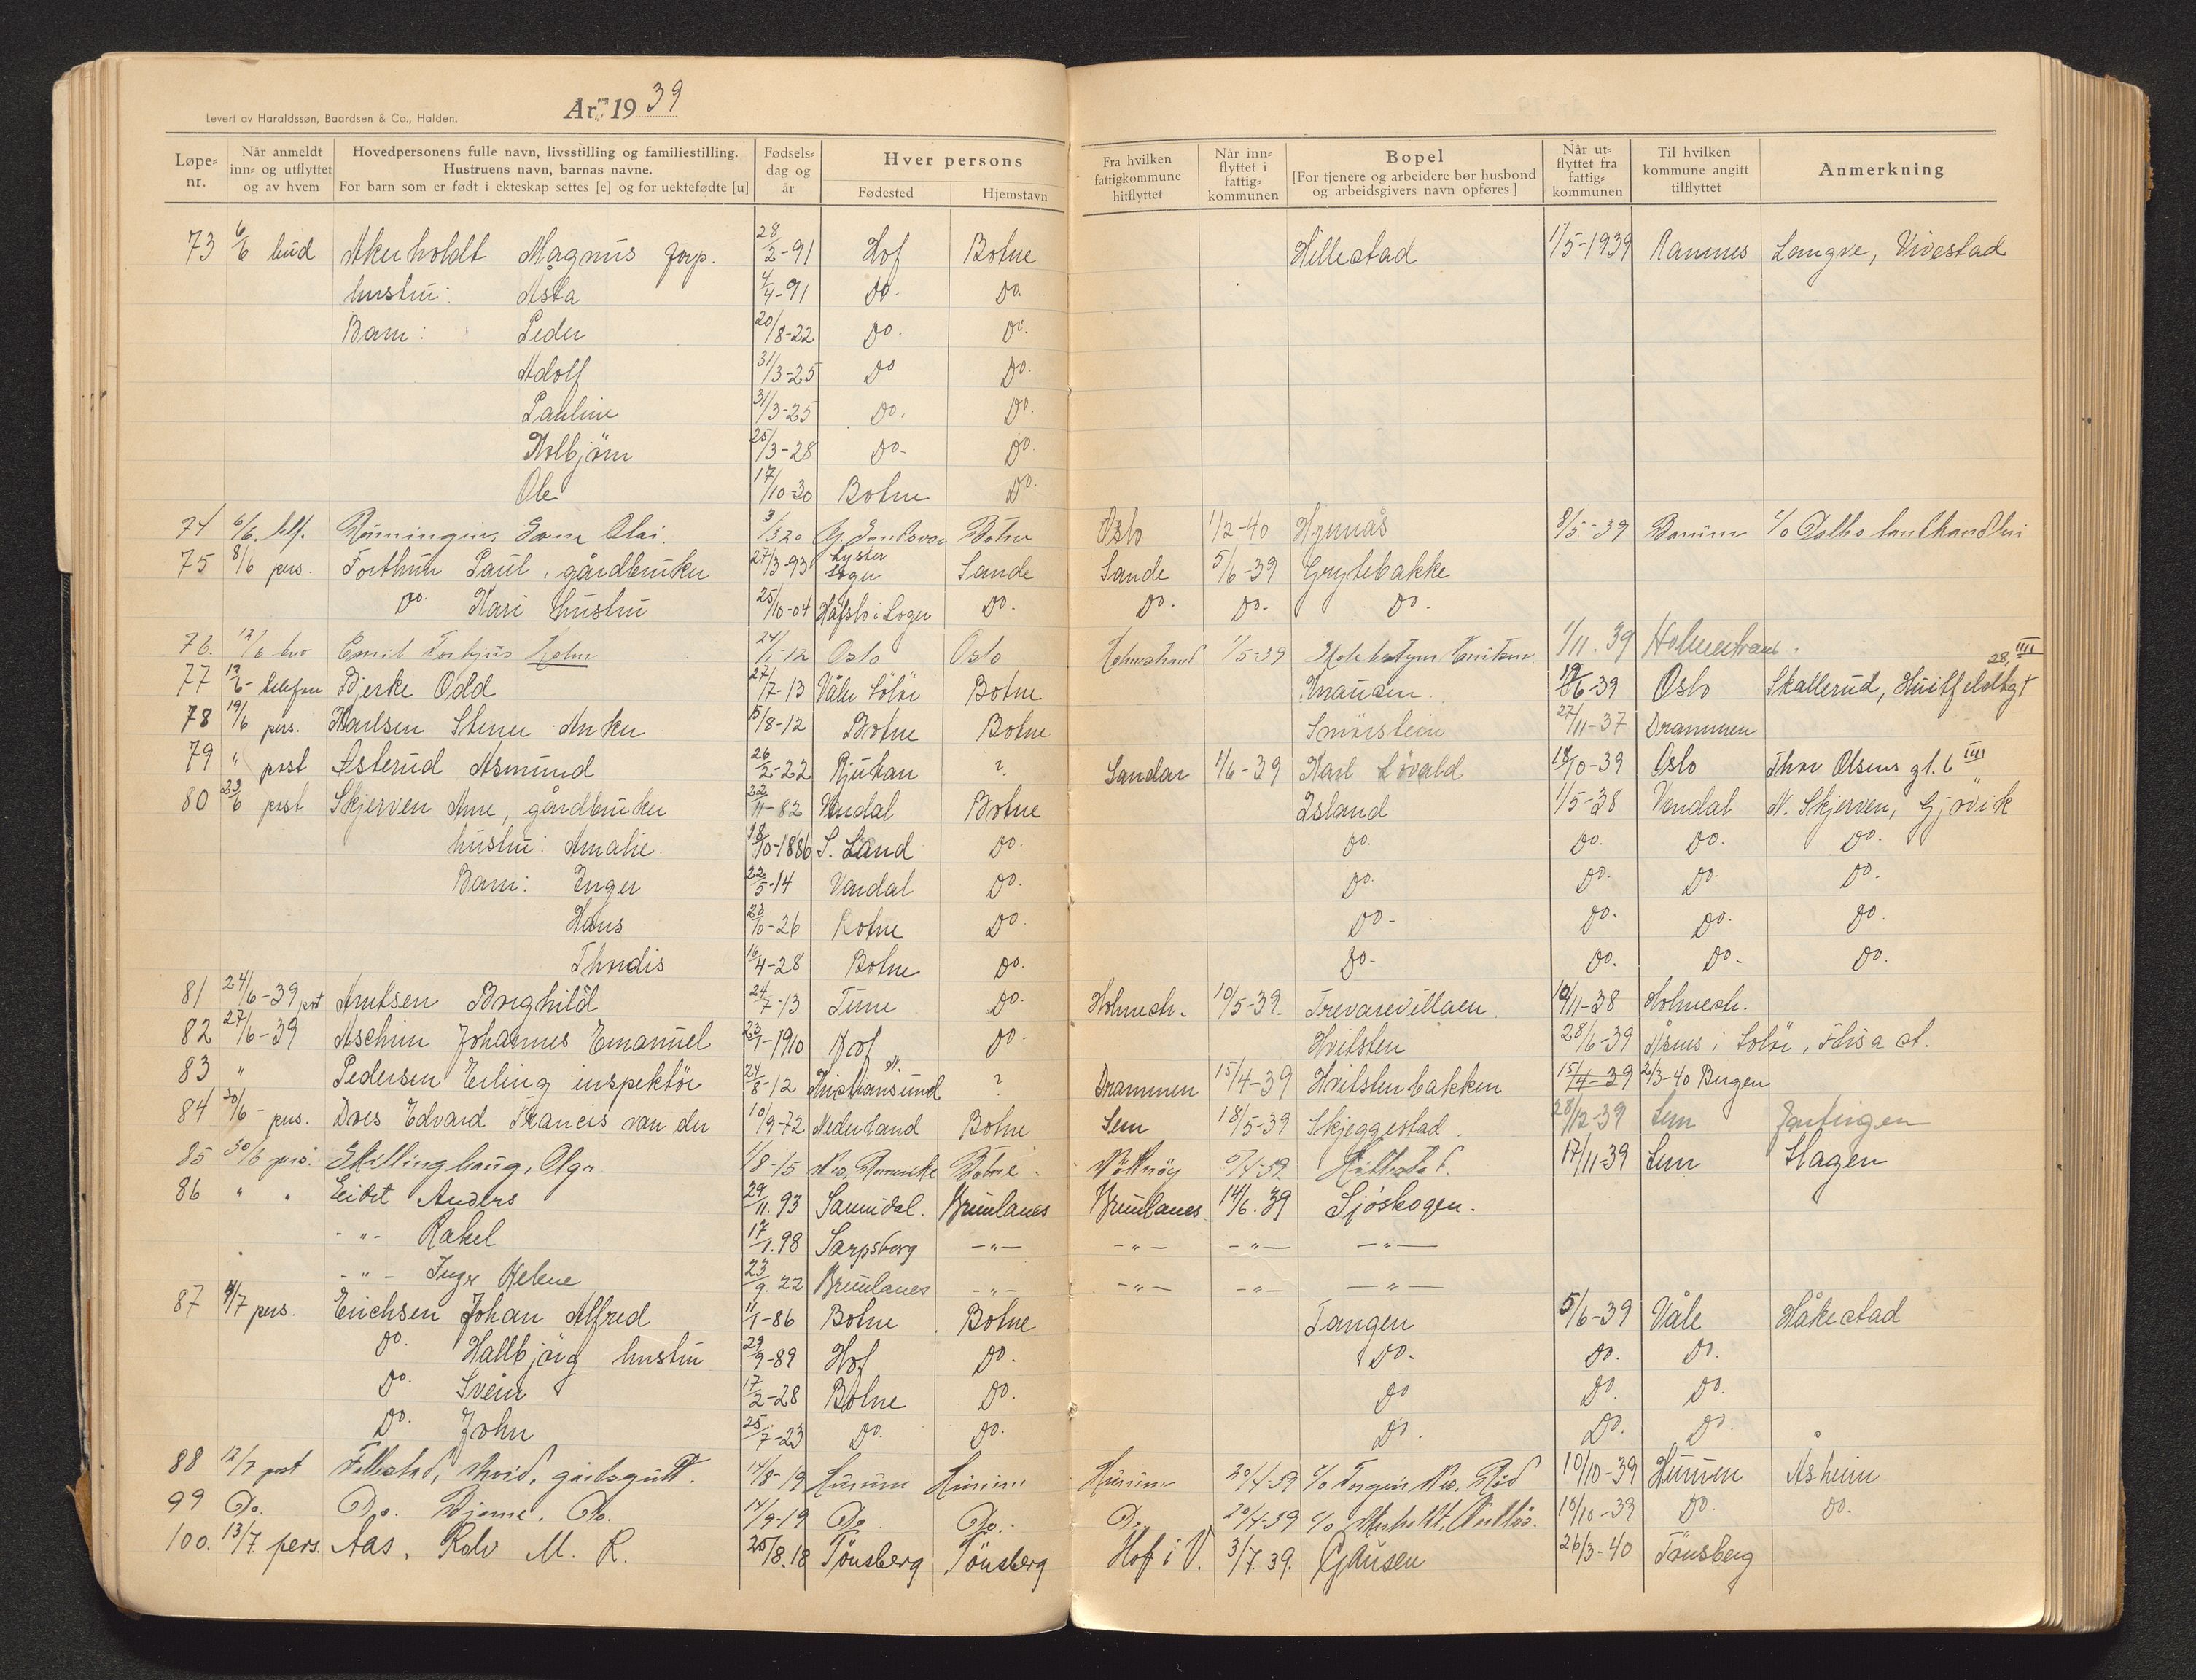 Levert av Haraldssøn, Baardsen & Co., Halden.
År 1939
Løpe-nr. Når anmeldt inn- og utflyttet og av hvem Hovedpersonens fulle navn, livsstilling og familiestilling. Hustruens navn, barnas navne. For barn som er født i ekteskap settes [e] og for uektefødte [u] Fødsels-dag og år Hver persons Fødested Hjemstavn Fra hvilken fattigkommune hitflyttet Når inn-flyttet i fattig-kommunen Bopel [For tjenere og arbeidere bør husbond og arbeidsgivers navn opføres] Når ut-flyttet fra fattig-kommunen Til hvilken kommune angitt tilflyttet Anmerkning
73 6/6 bud Akerholdt Magnus forp. 28/2-91 Hof Botne Hillestad 1/5-1939 Ramnes Langve, Vivestad
hustru: Asta 4/4-91 Do. Do.
Barn: Peder 20/8-22 Do. Do.
Adolf 31/3-25 Do Do.
Pauline 31/3-25 Do. Do.
Kolbjörn 25/3-28 Do- Do
Ole 17/10-30 Botne Do.
74 6/6. tlf. Rönningen, Olai. Botne Oslo 1/2-40 8/5-39 Bærum c/o landhandleri
75 8/6 pers. Forthun Paul, gårdbruker 27/3-93 Lyster Sogn Sande Sande 5/6-39 Grytebakke
Do. Kari hustru 25/10-04 Hafslo i Sogn Do. Do. Do. Do.
76. 12/6 Emil Torbjus Holm 24/1-12 Oslo Oslo Holmestrand 1/5-39 1/11.39 Holmestrand.
77 13/6- telefon Bjerke Odd 27/7-13 Våler Solör Botne Knausen. 10/6-39 Oslo Skallerud, Huitfeldtsgt 28, III
78 19/6 pers. Karlsen Stener Anker 5/8-12 Botne Botne Smörstein 27/11-37 Drammen
79 " post Østerud Asmund 26/2-22 Rjukan ? Sandar 1/6-39 Karl Lövald 18/10-39 Oslo Thor Olsens gt. 6 III
80 23/6 post Skjerven Arne, gårdbruker 22/11-82 Vardal Botne Island 1/5-38 Vardal N. Skjerven, Gjövik
hustru: Amalie. 18/10-1886 S. Land Do. Do. Do. Do. Do.
Barn: Inger 22/5-14 Vardal Do. Do. Do. Do. Do.
Hans 23/10-26 Botne Do. Do- Do. Do. Do.
Thordis 16/4-28 Botne Do. Do- Do. Do- Do.
81 24/6-39 post Arntsen Borghild 24/7-13 Time Do. Holmestr. 10/5-39. Trevarevillaen 10/11-38 Holmestr.
82 27/6-39 Aschim Johannes Emanuel 23/1-1910 Hof Do- Hvitsten 28/6-39 Åsnes i Solör, Flisa st.
83 " Pedersen Erling inspektör 24/8-12 Kristiansund N. ? Drammen 15/4-39 Hvitstenbakken 15/4-39 2/3-40 Bergen
84 30/6- pers. Dres Edvard Francis van der 10/9-72 Nederland Botne Sem 18/5-39 Skjeggestad. 28/12-39 Sem Jarlingen
85 30/6 pers. Skillinghaug, Olga 1/8-15 Nes, Romerike Botne. Nötteröy Hillestad. 17/11-39 Sem Hagen
86 " " Eidet Anders 29/11.93 Sannidal. Brunlanes Brunlanes 14/6.39 Sjöskogen.
- " - Rakel 17/1.98 Sarpsborg - " - - " - - " - - " -
- " - Inger Helene 23/9.22 Brunlanes - " - - " - - " - - " -
87 4/7 pers. Erichsen Johan Alfred 11/1-86 Botne Botne Tangen 5/6-39 Våle Håkestad
Do. Hallbjörg hustru 29/9-89 Hof Do. Do- Do. Do.
Do. Svein 17/2-28 Botne Do. Do Do. Do.
Do. John 25/7-23 Do. Do. Do. Do. Do.
88 12/7 post Follestad, Arvid, gårdsgutt. 14/8-19 Hurum Hurum Hurum 20/4-39 c/o Torgeir Röd 10/10-39 Hurum Åsheim
99 Do. Do. Bjarne. Do. 14/9-19 Do. Do.- Do. 20/4-39 c/o 10/10-39 Do. Do.
100. 13/7. pers. Aas, Rolv M. R. 25/8.18 Tönsberg Tönsberg Hof i V. 3/7.39. Gausen 26/3-40 Tönsberg